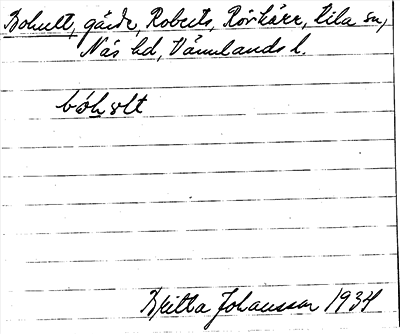 Bohult, gårdr, Roberts, Rörkärr, Lila sn,
Näs hd, Värmlands l.
bóhu̥lt
Britta Johansson 1934